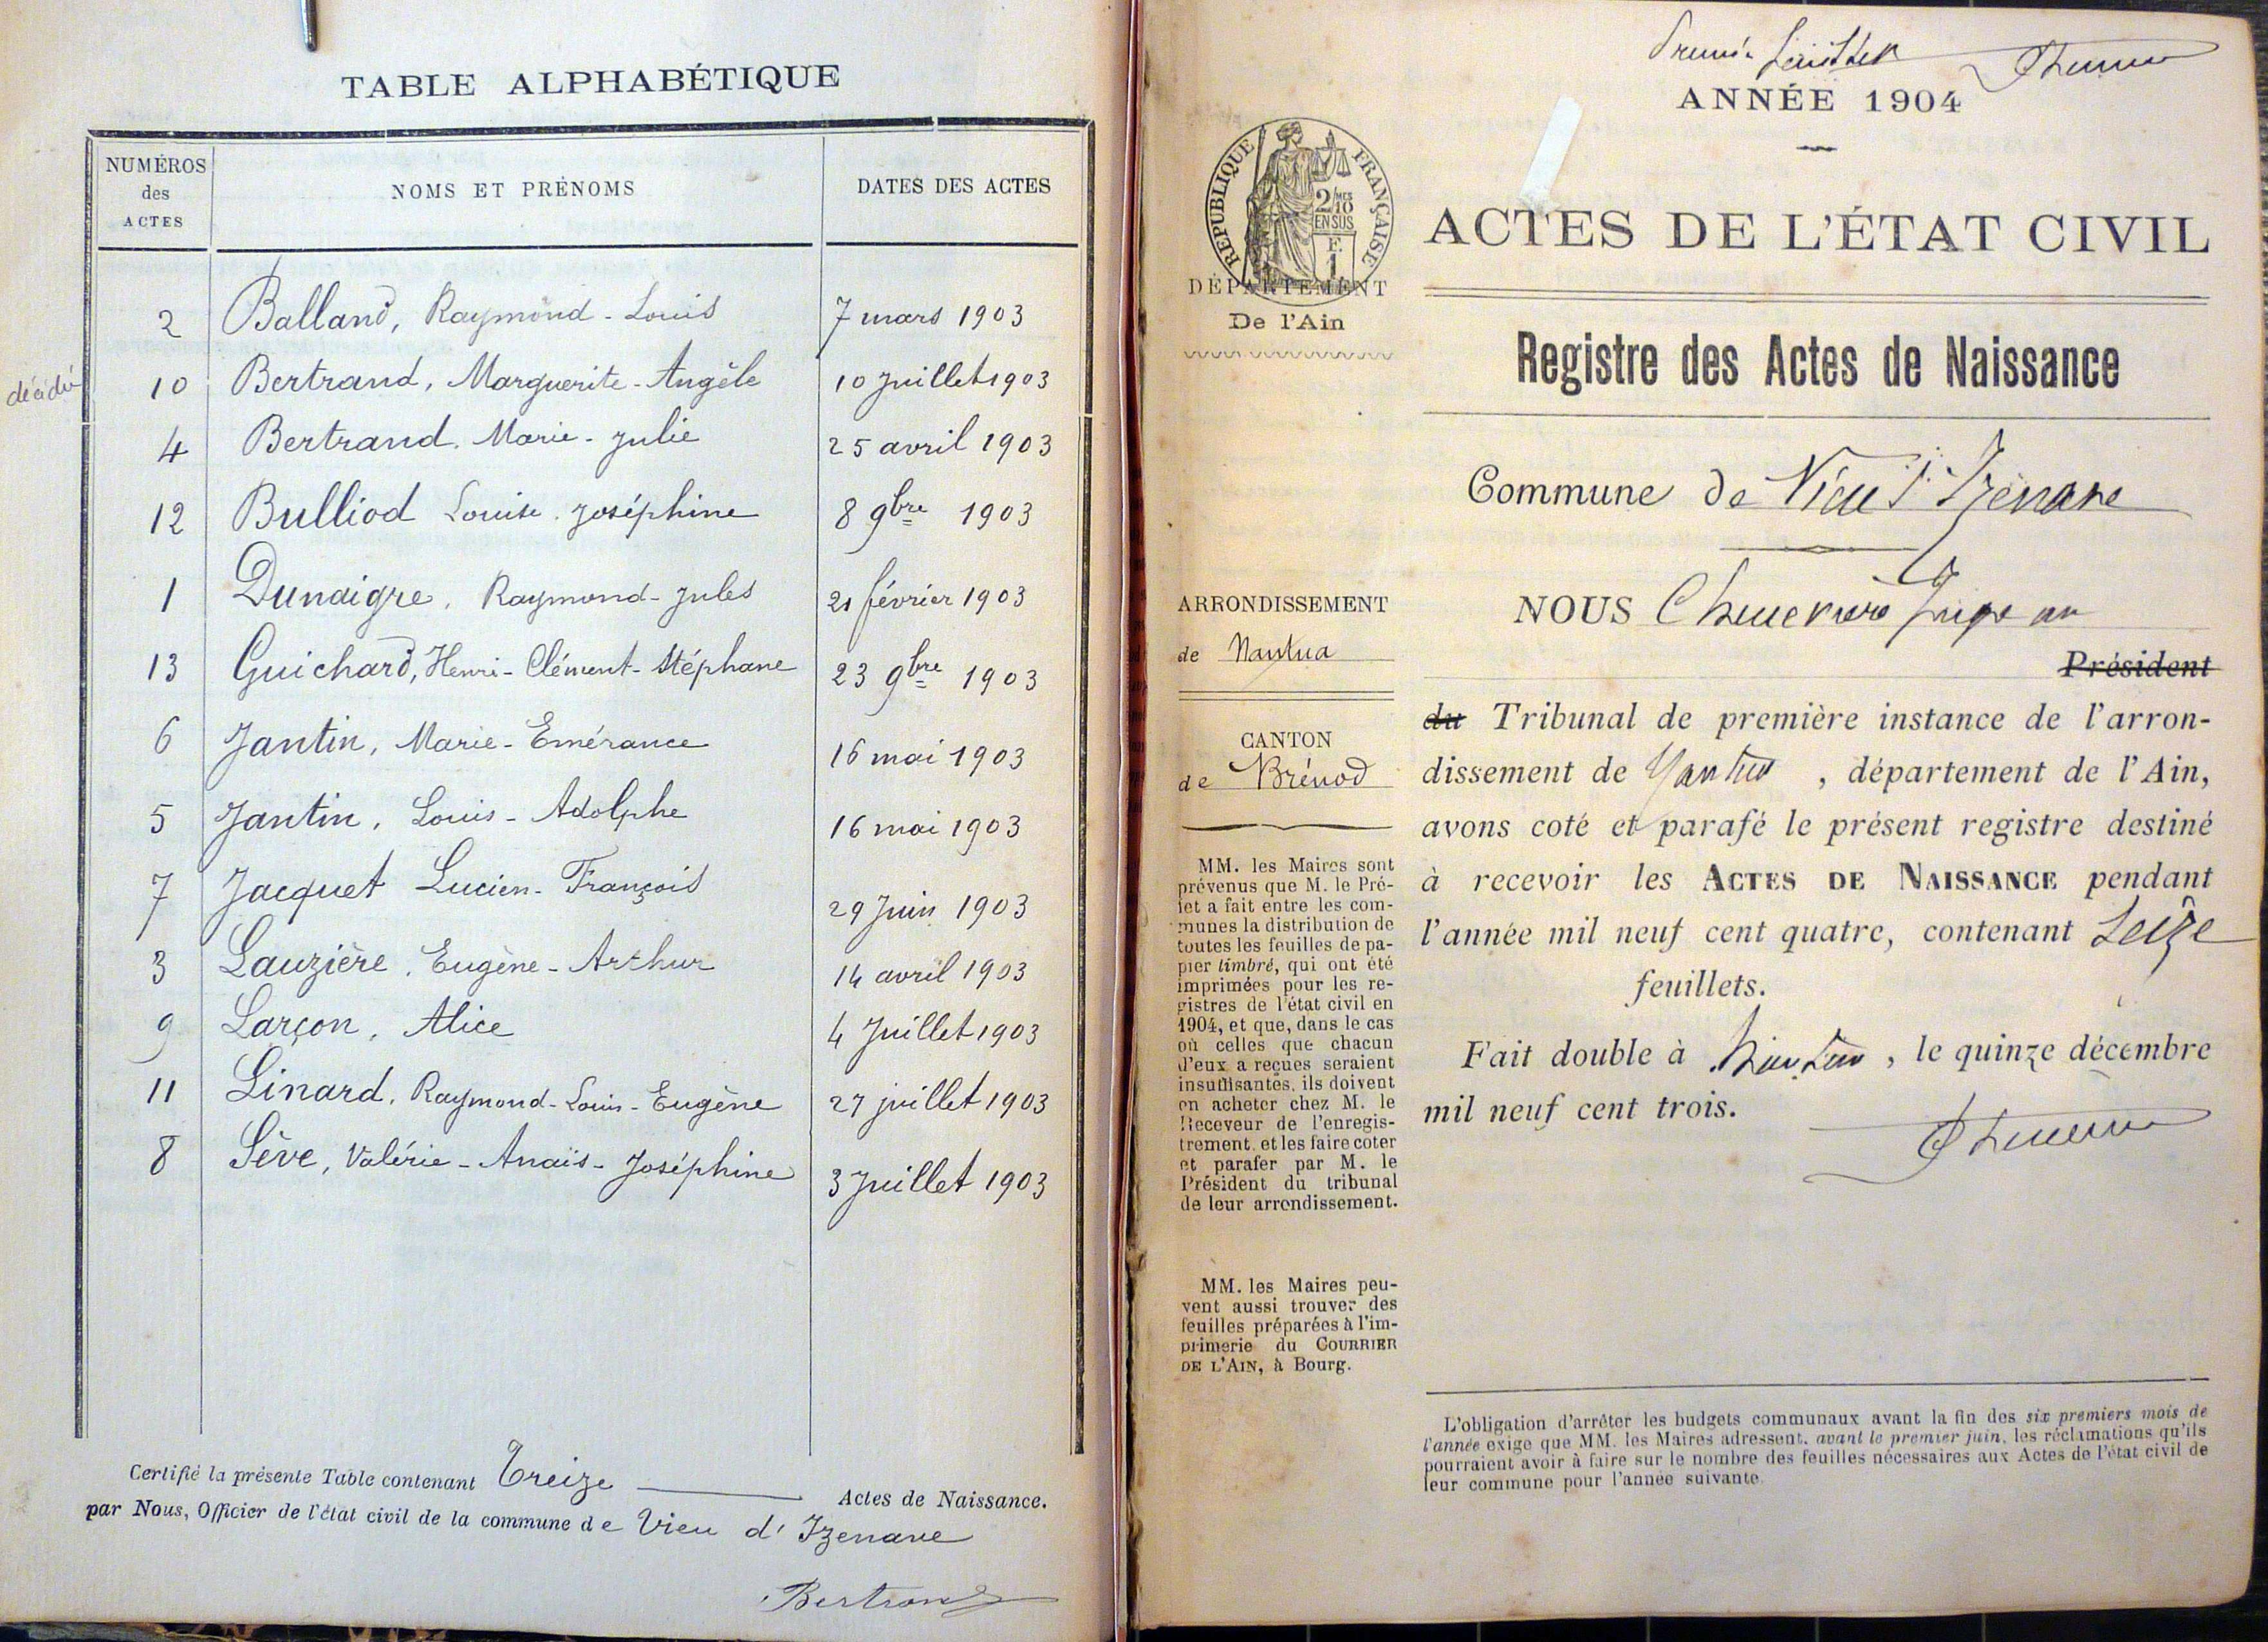 TABLE ALPHABÉTIQUE
NUMÉROS des ACTES
NOMS ET PRÉNOMS
DATES DES ACTES
2 Balland, Raymond-Louis 7 mars 1903
10 Bertrand, Marguerite-Angèle 10 Juillet 1903
4 Bertrand, Marie-Julie 25 avril 1903
12 Bulliod Louise Joséphine 8 9bre 1903
1 Dunaigre, Raymond-Jules 21 février 1903
13 Guichard, Henri-Clément-Stéphane 23 9bre 1903
6 Jantin, Marie-Emérance 16 mai 1903
5 Jantin, Louis-Adolphe 16 mai 1903
7 Jacquet Lucien-François 29 Juin 1903
3 Lauzière, Eugène-Arthur 14 avril 1903
9 Larçon, Alice 4 Juillet 1903
11 Linard, Raymond-Louis-Eugène 27 juillet 1903
8 Sève, Valérie-Anaïs-Joséphine 3 Juillet 1903
Certifié la présente Table contenant Treize Actes de Naissance.
par Nous, Officier de l'état civil de la commune de Vieu d'Izenave
Bertrand
Premier feuillet
ANNÉE 1904
RÉPUBLIQUE FRANÇAISE
2/10MES
EN SUS
F.
1
DÉPARTEMENT
De l'Ain
ACTES DE L'ÉTAT CIVIL
Registre des Actes de Naissance
Commune de Vieu d'Izenave
ARRONDISSEMENT
de Nantua
CANTON
de Brénod
MM. les Maires sont
prévenus que M. le Pré-
fet a fait entre les com-
munes la distribution de
toutes les feuilles de pa-
pier timbré, qui ont été
imprimées pour les re-
gistres de l'état civil en
1904, et que, dans le cas
où celles que chacun
d'eux a reçues seraient
insuffisantes, ils doivent
en acheter chez M. le
Receveur de l'enregis-
trement, et les faire coter
et parafer par M. le
Président du tribunal
de leur arrondissement.
MM. les Maires peu-
vent aussi trouver des
feuilles préparées à l'im-
primerie du COURRIER
DE L'AIN, à Bourg.
NOUS Juge au
Président
du Tribunal de première instance de l'arron-
dissement de Nantua, département de l'Ain,
avons coté et parafé le présent registre destiné
à recevoir les ACTES DE NAISSANCE pendant
l'année mil neuf cent quatre, contenant Seize
feuillets.
Fait double à Nantua, le quinze décembre
mil neuf cent trois.
L'obligation d'arrêter les budgets communaux avant la fin des six premiers mois de
l'année exige que MM. les Maires adressent, avant le premier juin, les réclamations qu'ils
pourraient avoir à faire sur le nombre des feuilles nécessaires aux Actes de l'état civil de
leur commune pour l'année suivante.